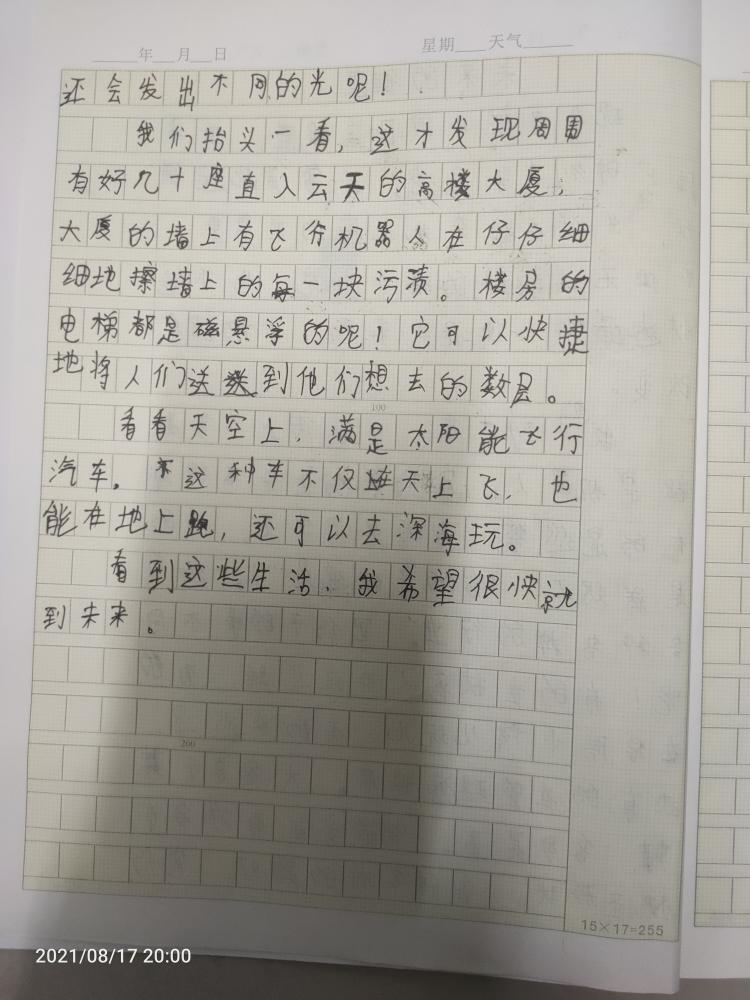 年 月 日 星期 天气
还会发出不同的光呢！
我们抬头一看，这才发现周围
有好几十座直入云天的高楼大厦，
大厦的墙上有飞行机器人在仔仔细
细地擦墙上的每一块污渍。楼房的
电梯都是磁悬浮的呢！它可以快捷
地将人们送到他们想去的数层。
100
看看天空上，满是太阳能飞行
汽车。这种车不仅在天上飞，也
能在地上跑，还可以去深海玩。
看到这些生活，我希望很快就
到未来。
200
15×17=255
2021/08/17 20:00